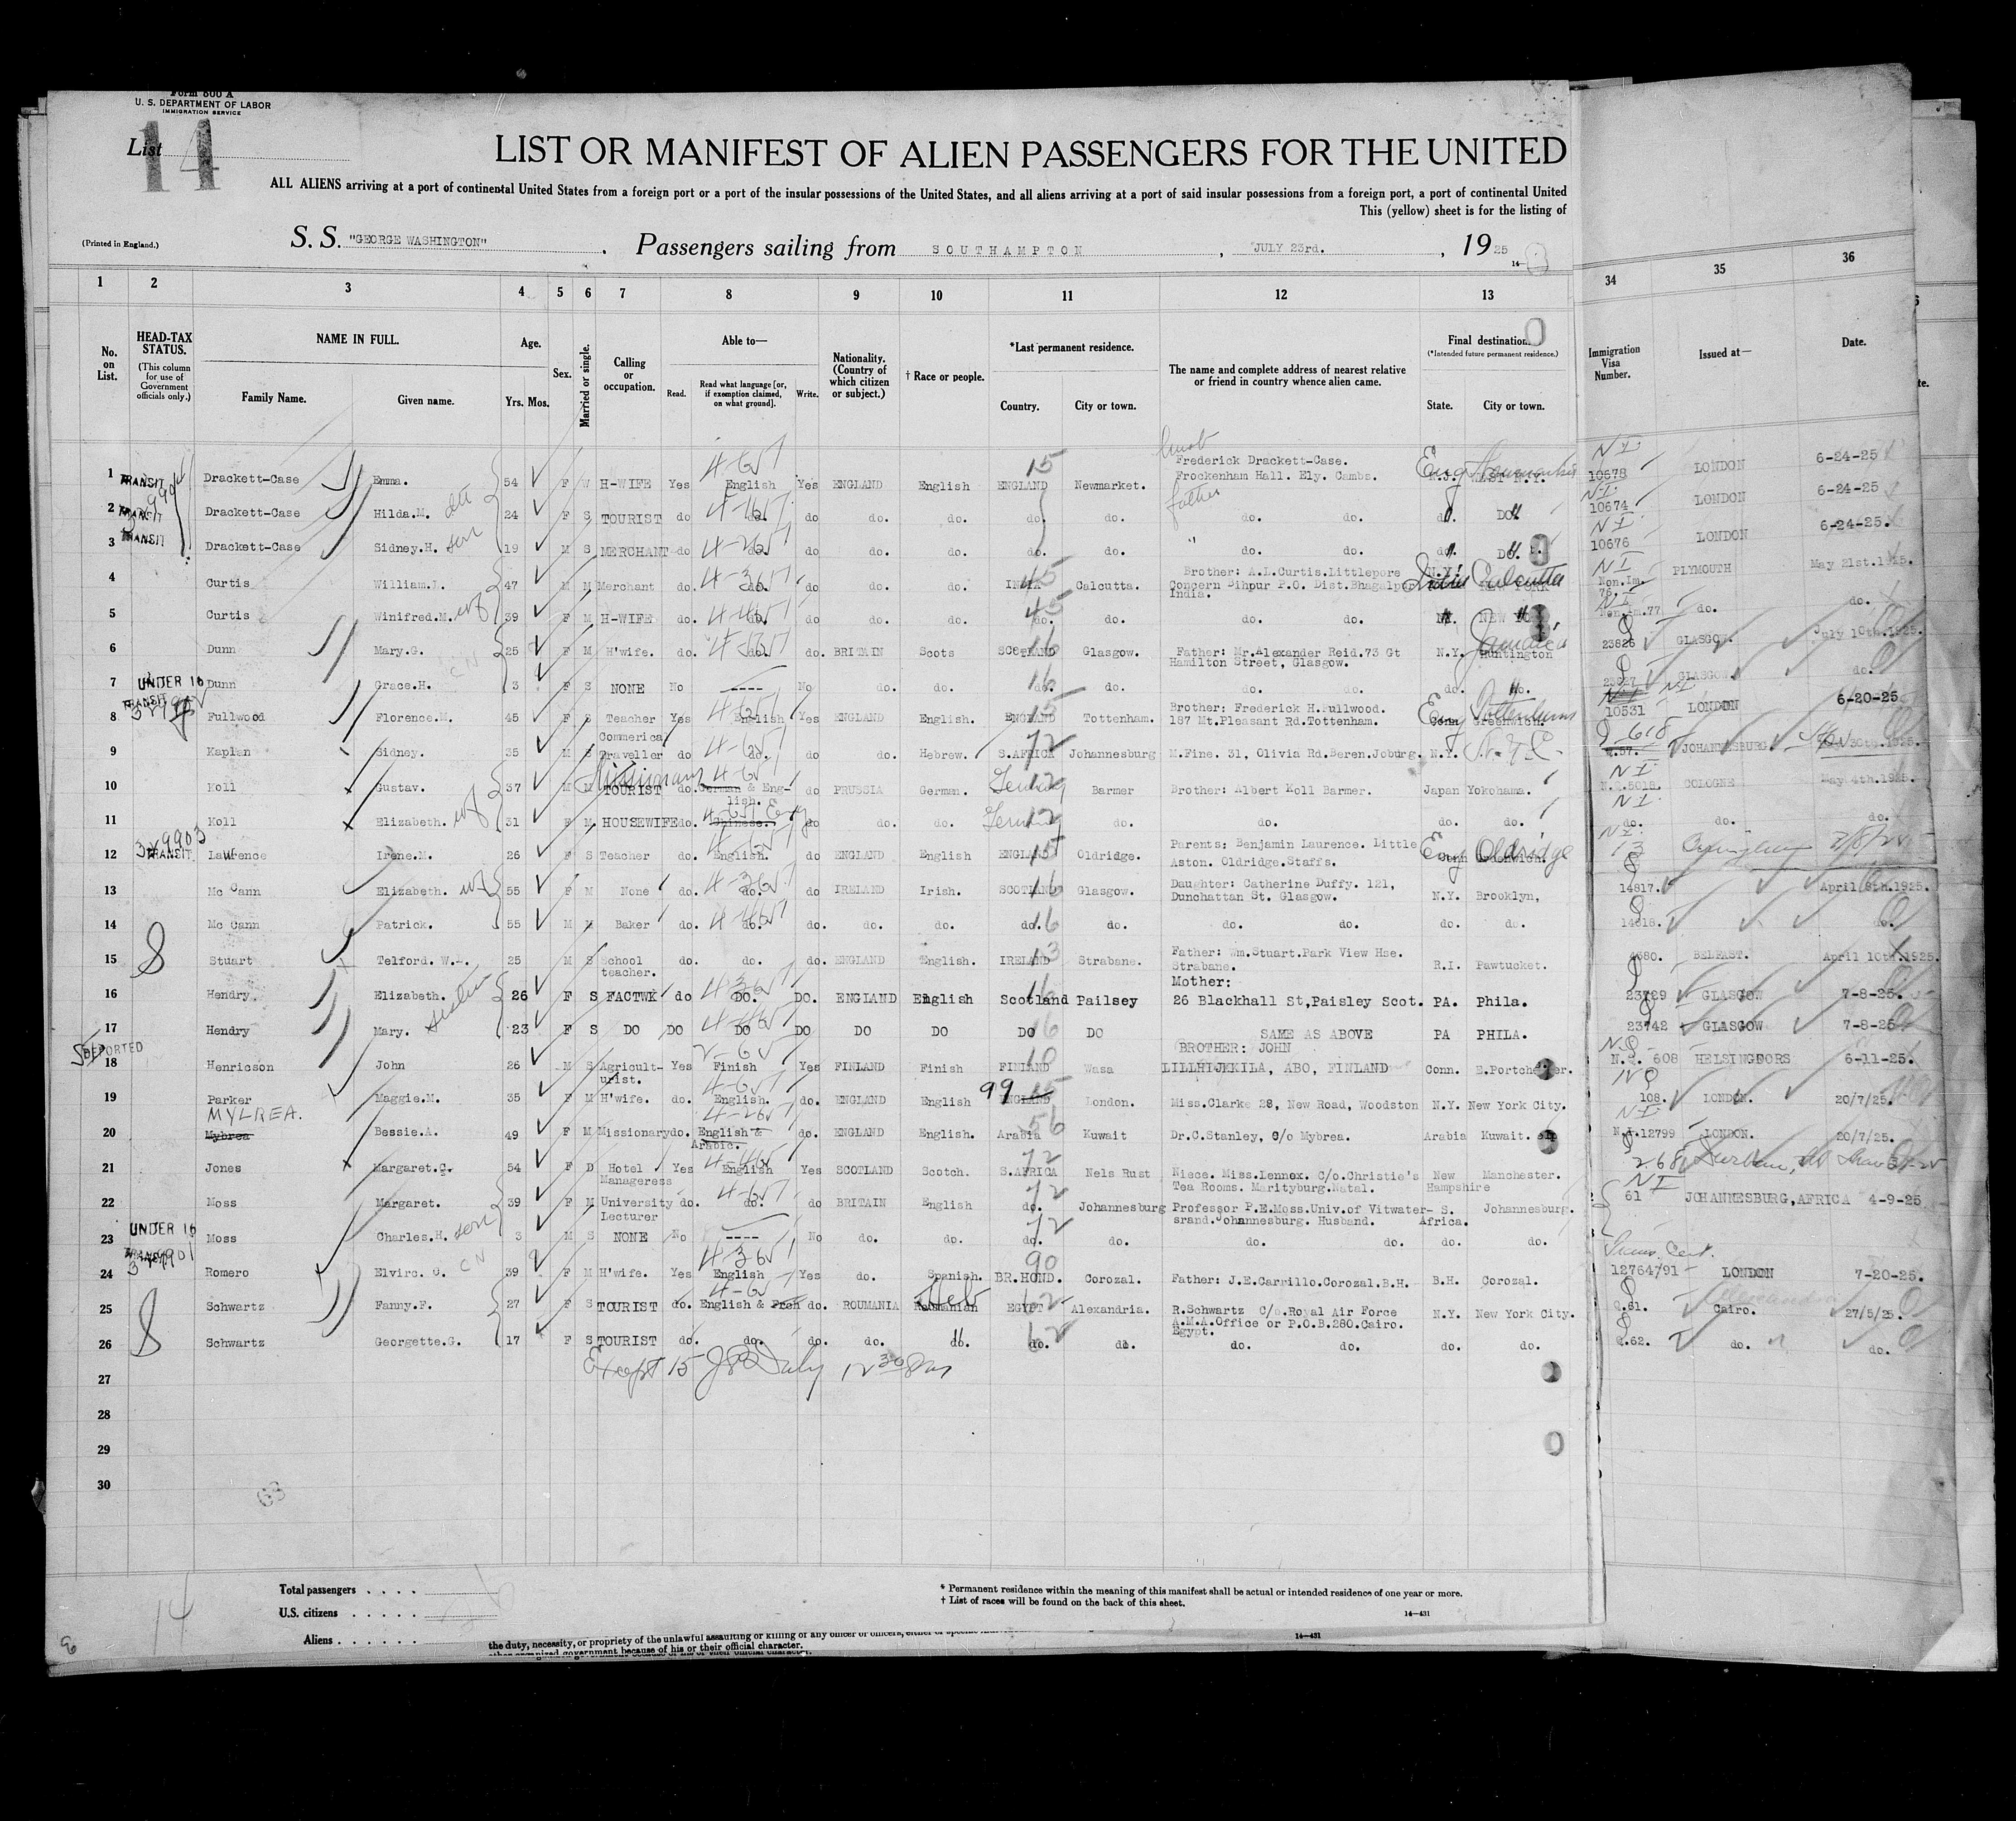 Form 500 A
U. S. DEPARTMENT OF LABOR
IMMIGRATION SERVICE
List 14
LIST OR MANIFEST OF ALIEN PASSENGERS FOR THE UNITED
ALL ALIENS arriving at a port of continental United States from a foreign port or a port of the insular possessions of the United States, and all aliens arriving at a port of said insular possessions from a foreign port, a port of continental United
This (yellow) sheet is for the listing of
(Printed in England.) S. S. "GEORGE WASHINGTON" . Passengers sailing from SOUTHAMPTON , JULY 23rd. , 1925
1 2 3 4 5 6 7 8 9 10 11 12 13 34 35 36
No. on List. HEAD-TAX STATUS. (This column for use of Government officials only.) NAME IN FULL. Family Name. Given name. Age. Yrs. Mos. Sex. Married or single. Calling or occupation. Able to— Read. Read what language [or, if exemption claimed, on what ground]. Write. Nationality. (Country of which citizen or subject.) † Race or people. *Last permanent residence. Country. City or town. The name and complete address of nearest relative or friend in country whence alien came. Final destination. (*Intended future permanent residence.) State. City or town. Immigration Visa Number. Issued at— Date.
1 TRANSIT Drackett-Case Emma. 54 F W H-WIFE Yes English Yes ENGLAND English ENGLAND Newmarket. Frederick Drackett-Case. Frockenham Hall. Ely. Cambs. Eng 10678 LONDON 6-24-25
2 TRANSIT Drackett-Case Hilda.M. 24 F S TOURIST do do. do do. do. do. do. father do. do. do. DO. 10674 LONDON 6-24-25
3 TRANSIT Drackett-Case Sidney.H. son 19 M S MERCHANT do do. do do. do. do. do. " do. do. do. DO. 10676 LONDON 6-24-25.
4 Curtis William.L. 47 M M Merchant do. do. do do. do. INDIA Calcutta. Brother: A.L.Curtis.Littlepore Concern Bihpur P.O. Dist.Bhagalpur India. N.Y. NEW YORK India Calcutta NI Non.Im. 76. PLYMOUTH May 21st.1925.
5 Curtis Winifred.M. wf 39 F M H-WIFE do. do. do. do. do. do. do. do. do. NY. NEW YORK Non.Im.77 do. do.
6 Dunn Mary.G. 25 F M H'wife. do. do. do. BRITAIN Scots SCOTLAND Glasgow. Father: Mr.Alexander Reid.73 Gt Hamilton Street, Glasgow. N.Y. Huntington Jamaica 23826 GLASGOW. July 10th.1925.
7 UNDER 16 Dunn Grace.H. 3 F S NONE No ---- No do. do. do. do. do. do. do. do. 23827 GLASGOW. do.
8 TRANSIT Fullwood Florence.M. 45 F S Teacher Yes English Yes ENGLAND English. ENGLAND Tottenham. Brother: Frederick H.Fullwood. 187 Mt.Pleasant Rd.Tottenham. Conn Greenwich. Eng Tottenham 10531 LONDON 6-20-25
9 Kaplan Sidney. 35 M S Commerical Traveller do do. do do. Hebrew. S.AFRICA Johannesburg M.Fine. 31, Olivia Rd.Beren.Joburg. N.Y. 618 JOHANNESBURG
10 Koll Gustav. 37 M M TOURIST Missionary do. German & English. do PRUSSIA German. Germany Barmer Brother: Albert Koll Barmer. Japan Yokohama. NI N.I.5018. COLOGNE May 4th.1925.
11 Koll Elizabeth. wf 31 F M HOUSEWIFE do. Chinese. Eng do do. do. Germany do. do. do. do. NI do. do. do.
12 TRANSIT Lawrence Irene.M. 26 F S Teacher do. English. do ENGLAND English ENGLAND Oldridge. Parents: Benjamin Laurence. Little Aston. Oldridge.Staffs. Conn Greenwich. Eng Oldridge NI 13
13 Mc Cann Elizabeth. wf 55 F M None do. do. do IRELAND Irish. SCOTLAND Glasgow. Daughter: Catherine Duffy. 121, Dunchattan St. Glasgow. N.Y. Brooklyn, 14817. April 8th.1925.
14 Mc Cann Patrick. 55 M M Baker do. do. do. do. do. do. do. do. do. do. do. 14818. do.
15 Stuart Telford. W. 25 M S School teacher. do. do. do. ENGLAND English. IRELAND Strabane. Father: Wm.Stuart.Park View Hse. Strabane. R.I. Pawtucket. BELFAST. April 10th.1925.
16 Hendry Elizabeth. 26 F S FACTWK do DO. DO. ENGLAND English Scotland Pailsey Mother: 26 Blackhall St,Paisley Scot. PA. Phila. 23729 GLASGOW 7-8-25.
17 Hendry Mary. sister 23 F S DO DO DO DO DO DO DO DO SAME AS ABOVE PA PHILA. 23742 GLASGOW 7-8-25
18 DEPORTED Henricson John 26 M S Agriculturist. Yes Finish Yes FINLAND Finish FINLAND Wasa BROTHER: JOHN LILLHIJKKILA, ABO, FINLAND Conn. E.Portchester. 608 HELSINGDORS 6-11-25.
19 Parker Maggie.M. 35 F M H'wife. do. English. do. ENGLAND English ENGLAND 99 London. Miss.Clarke 28, New Road, Woodston N.Y. New York City. 108. LONDON. 20/7/25.
20 MYLREA. Mybrea Bessie.A. 49 F M Missionary do. English & Arabic. do. ENGLAND English. Arabia Kuwait Dr.C.Stanley, C/o Mybrea. Arabia Kuwait. NI N.I.12799 LONDON. 20/7/25.
21 Jones Margaret.C. 54 F D Hotel Manageress Yes English Yes SCOTLAND Scotch. S.AFRICA Nels Rust Niece. Miss.Lennox. C/o.Christie's Tea Rooms. Marityburg.Natal. New Hampshire Manchester. 268 Durban
22 Moss Margaret. 39 F M University Lecturer do. do. do BRITAIN English do. Johannesburg Professor P.E.Moss.Univ.of Vitwatersrand.Johannesburg. Husband. S. Africa. Johannesburg. NI 61 JOHANNESBURG,AFRICA 4-9-25
23 UNDER 16 Moss Charles.H. son 3 M S NONE No ---- No do. do. do. do. do. do. do. do.
24 TRANSIT Romero Elvirc. O. 39 F M H'wife. Yes English Yes do. Spanish. BR.HOND. Corozal. Father: J.E.Carrillo.Corozal.B.H. B.H. Corozal. Trans. Cert. 12764/91 LONDON 7-20-25.
25 Schwartz Fanny.F. 27 F S TOURIST do. English & Freh do. ROUMANIA Roumanian Heb EGYPT Alexandria. R.Schwartz C/o.Royal Air Force A.M.A.Office or P.O.B.280.Cairo. Egypt. N.Y. New York City. Q.61. Cairo. 27/5/25.
26 Schwartz Georgette.G. 17 F S TOURIST do. do. do. do. do. do. do. do. do. do. do. Q.62. do. do.
27 Except 15
28
29
30
Total passengers . . . .
U.S. citizens . . . . .
Aliens . . . . . .
* Permanent residence within the meaning of this manifest shall be actual or intended residence of one year or more.
† List of races will be found on the back of this sheet.
14—431
the duty, necessity, or propriety of the unlawful assaulting or killing of any officer or officers,
14—431